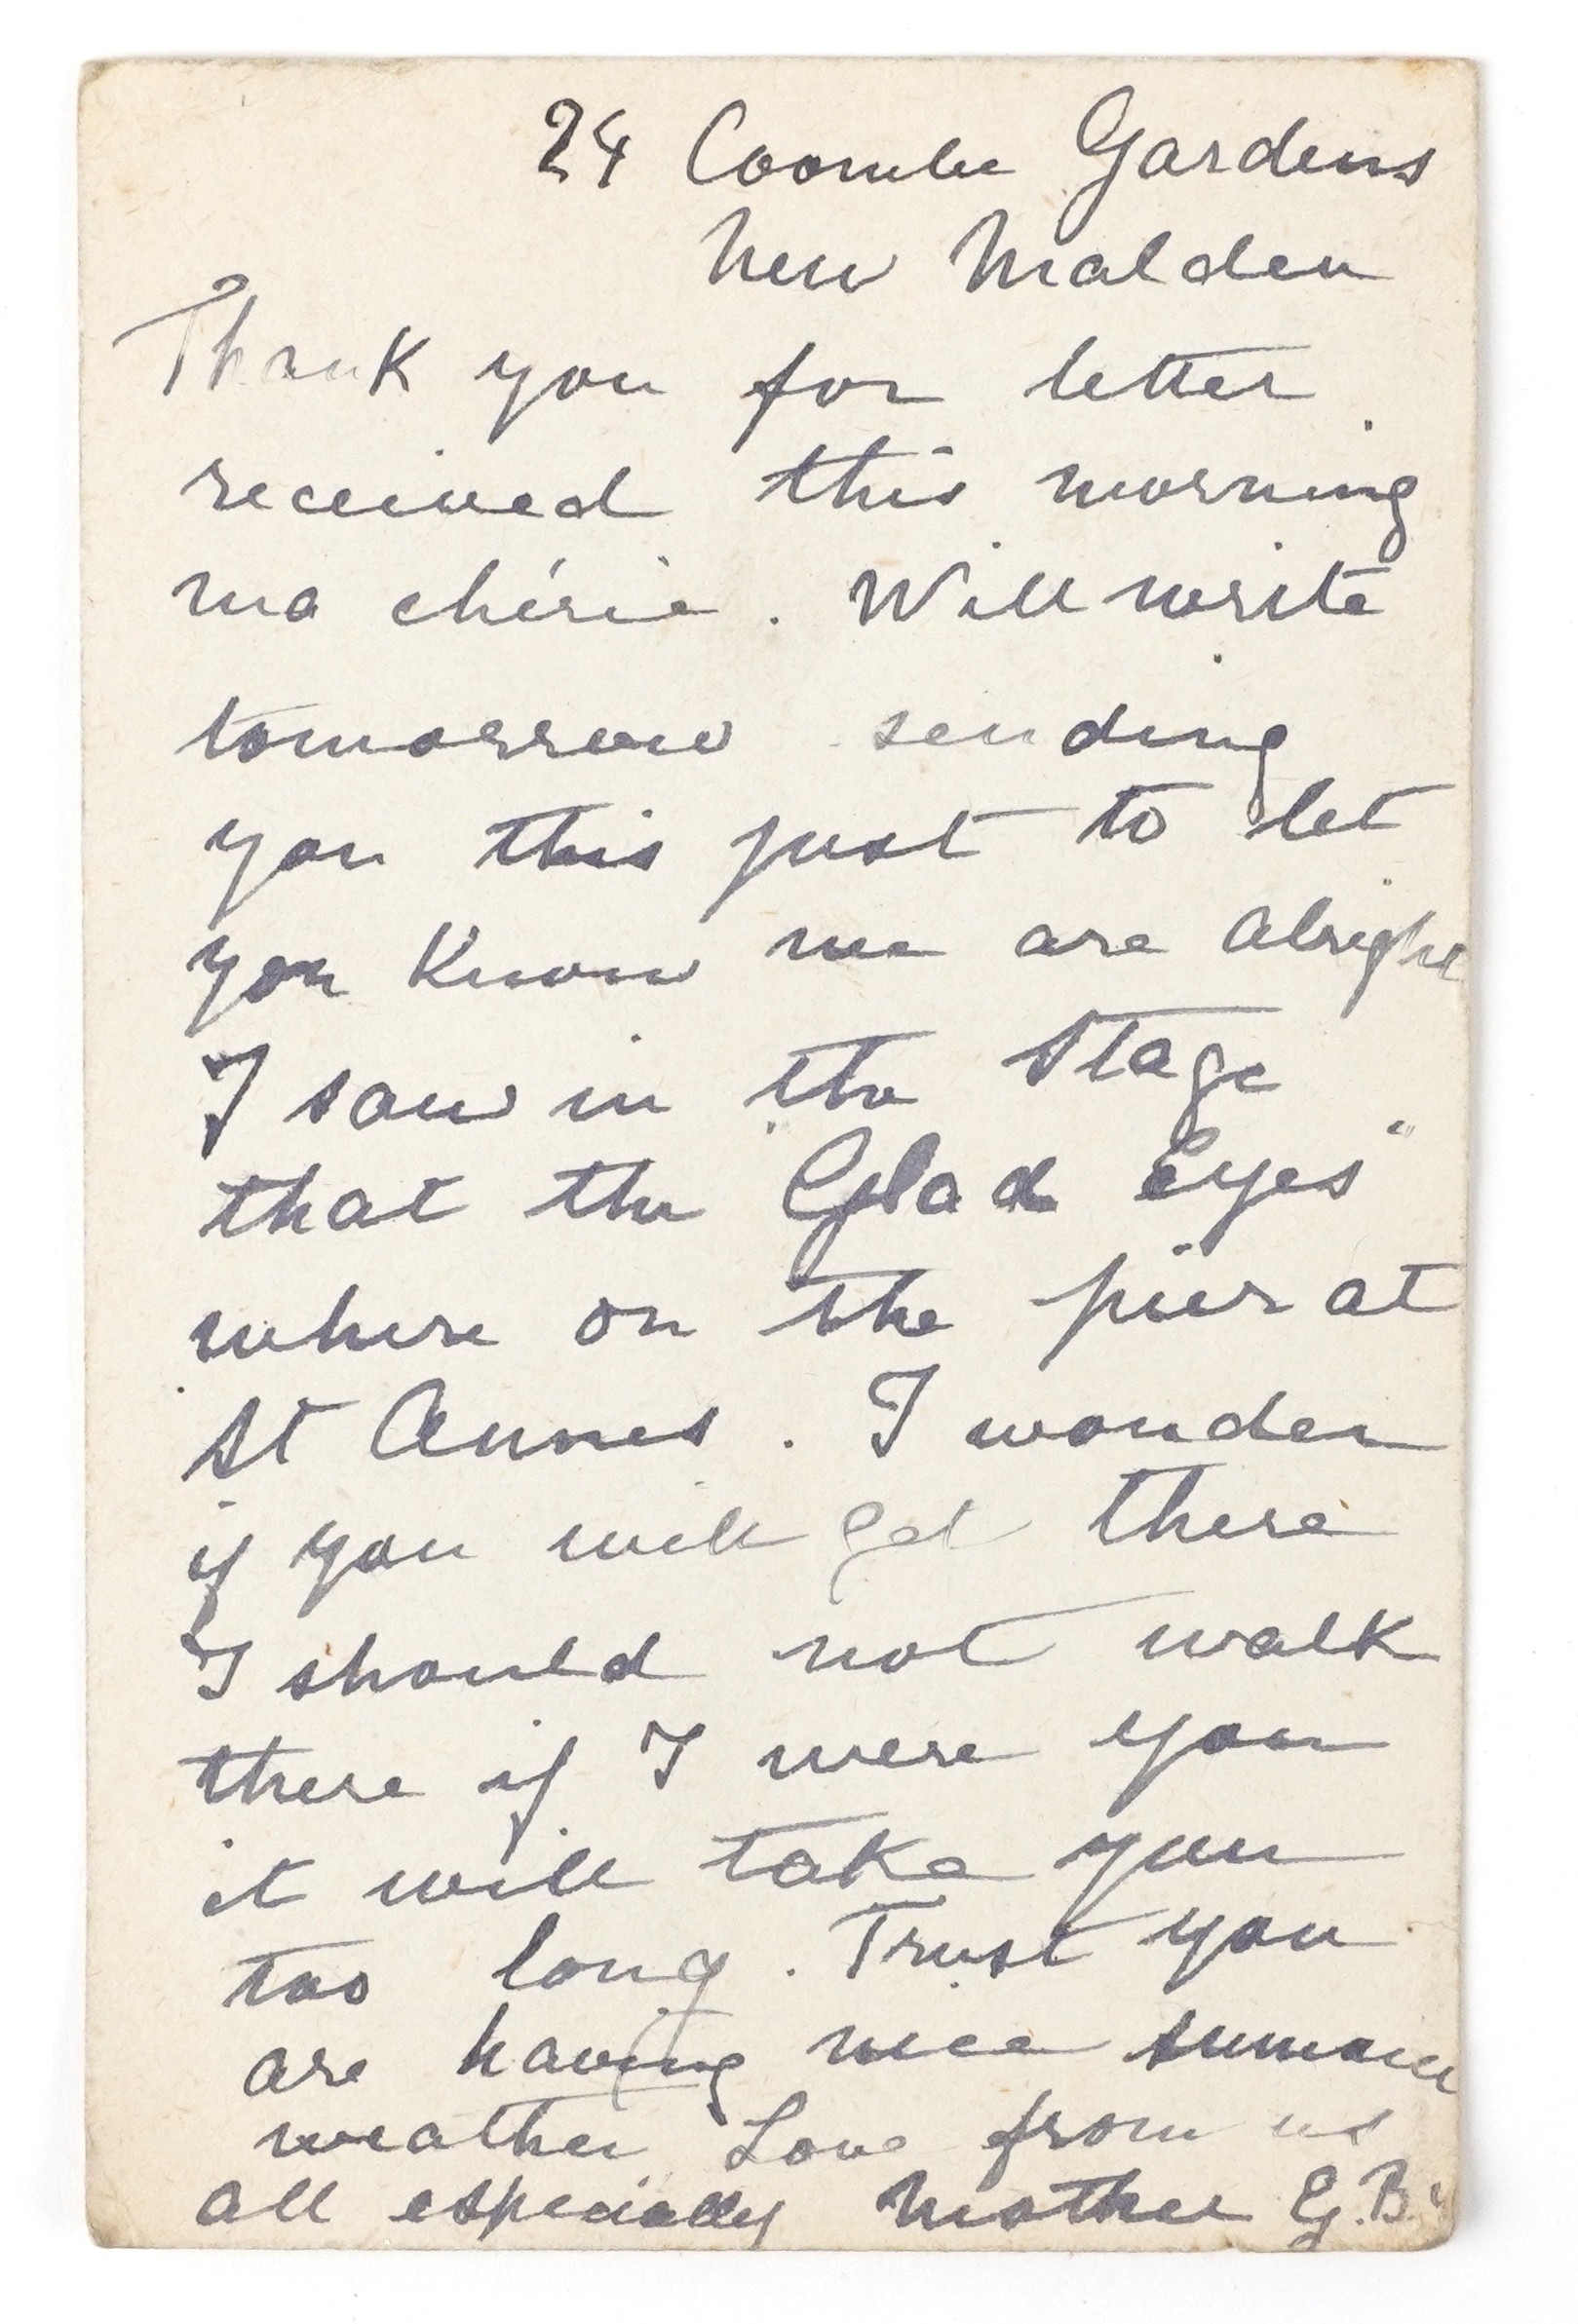 24 Coombe Gardens
New Malden
Thank you for letter
received this morning
ma chérie. Will write
tomorrow sending
you this just to let
you know we are alright
I saw in the Stage
that the "Glad Eyes"
where on the pier at
St Annes. I wonder
if you will get there
I should not walk
there if I were you
it will take you
too long. Trust you
are having nice summer
weather Love from us
all especially Mother G.B.